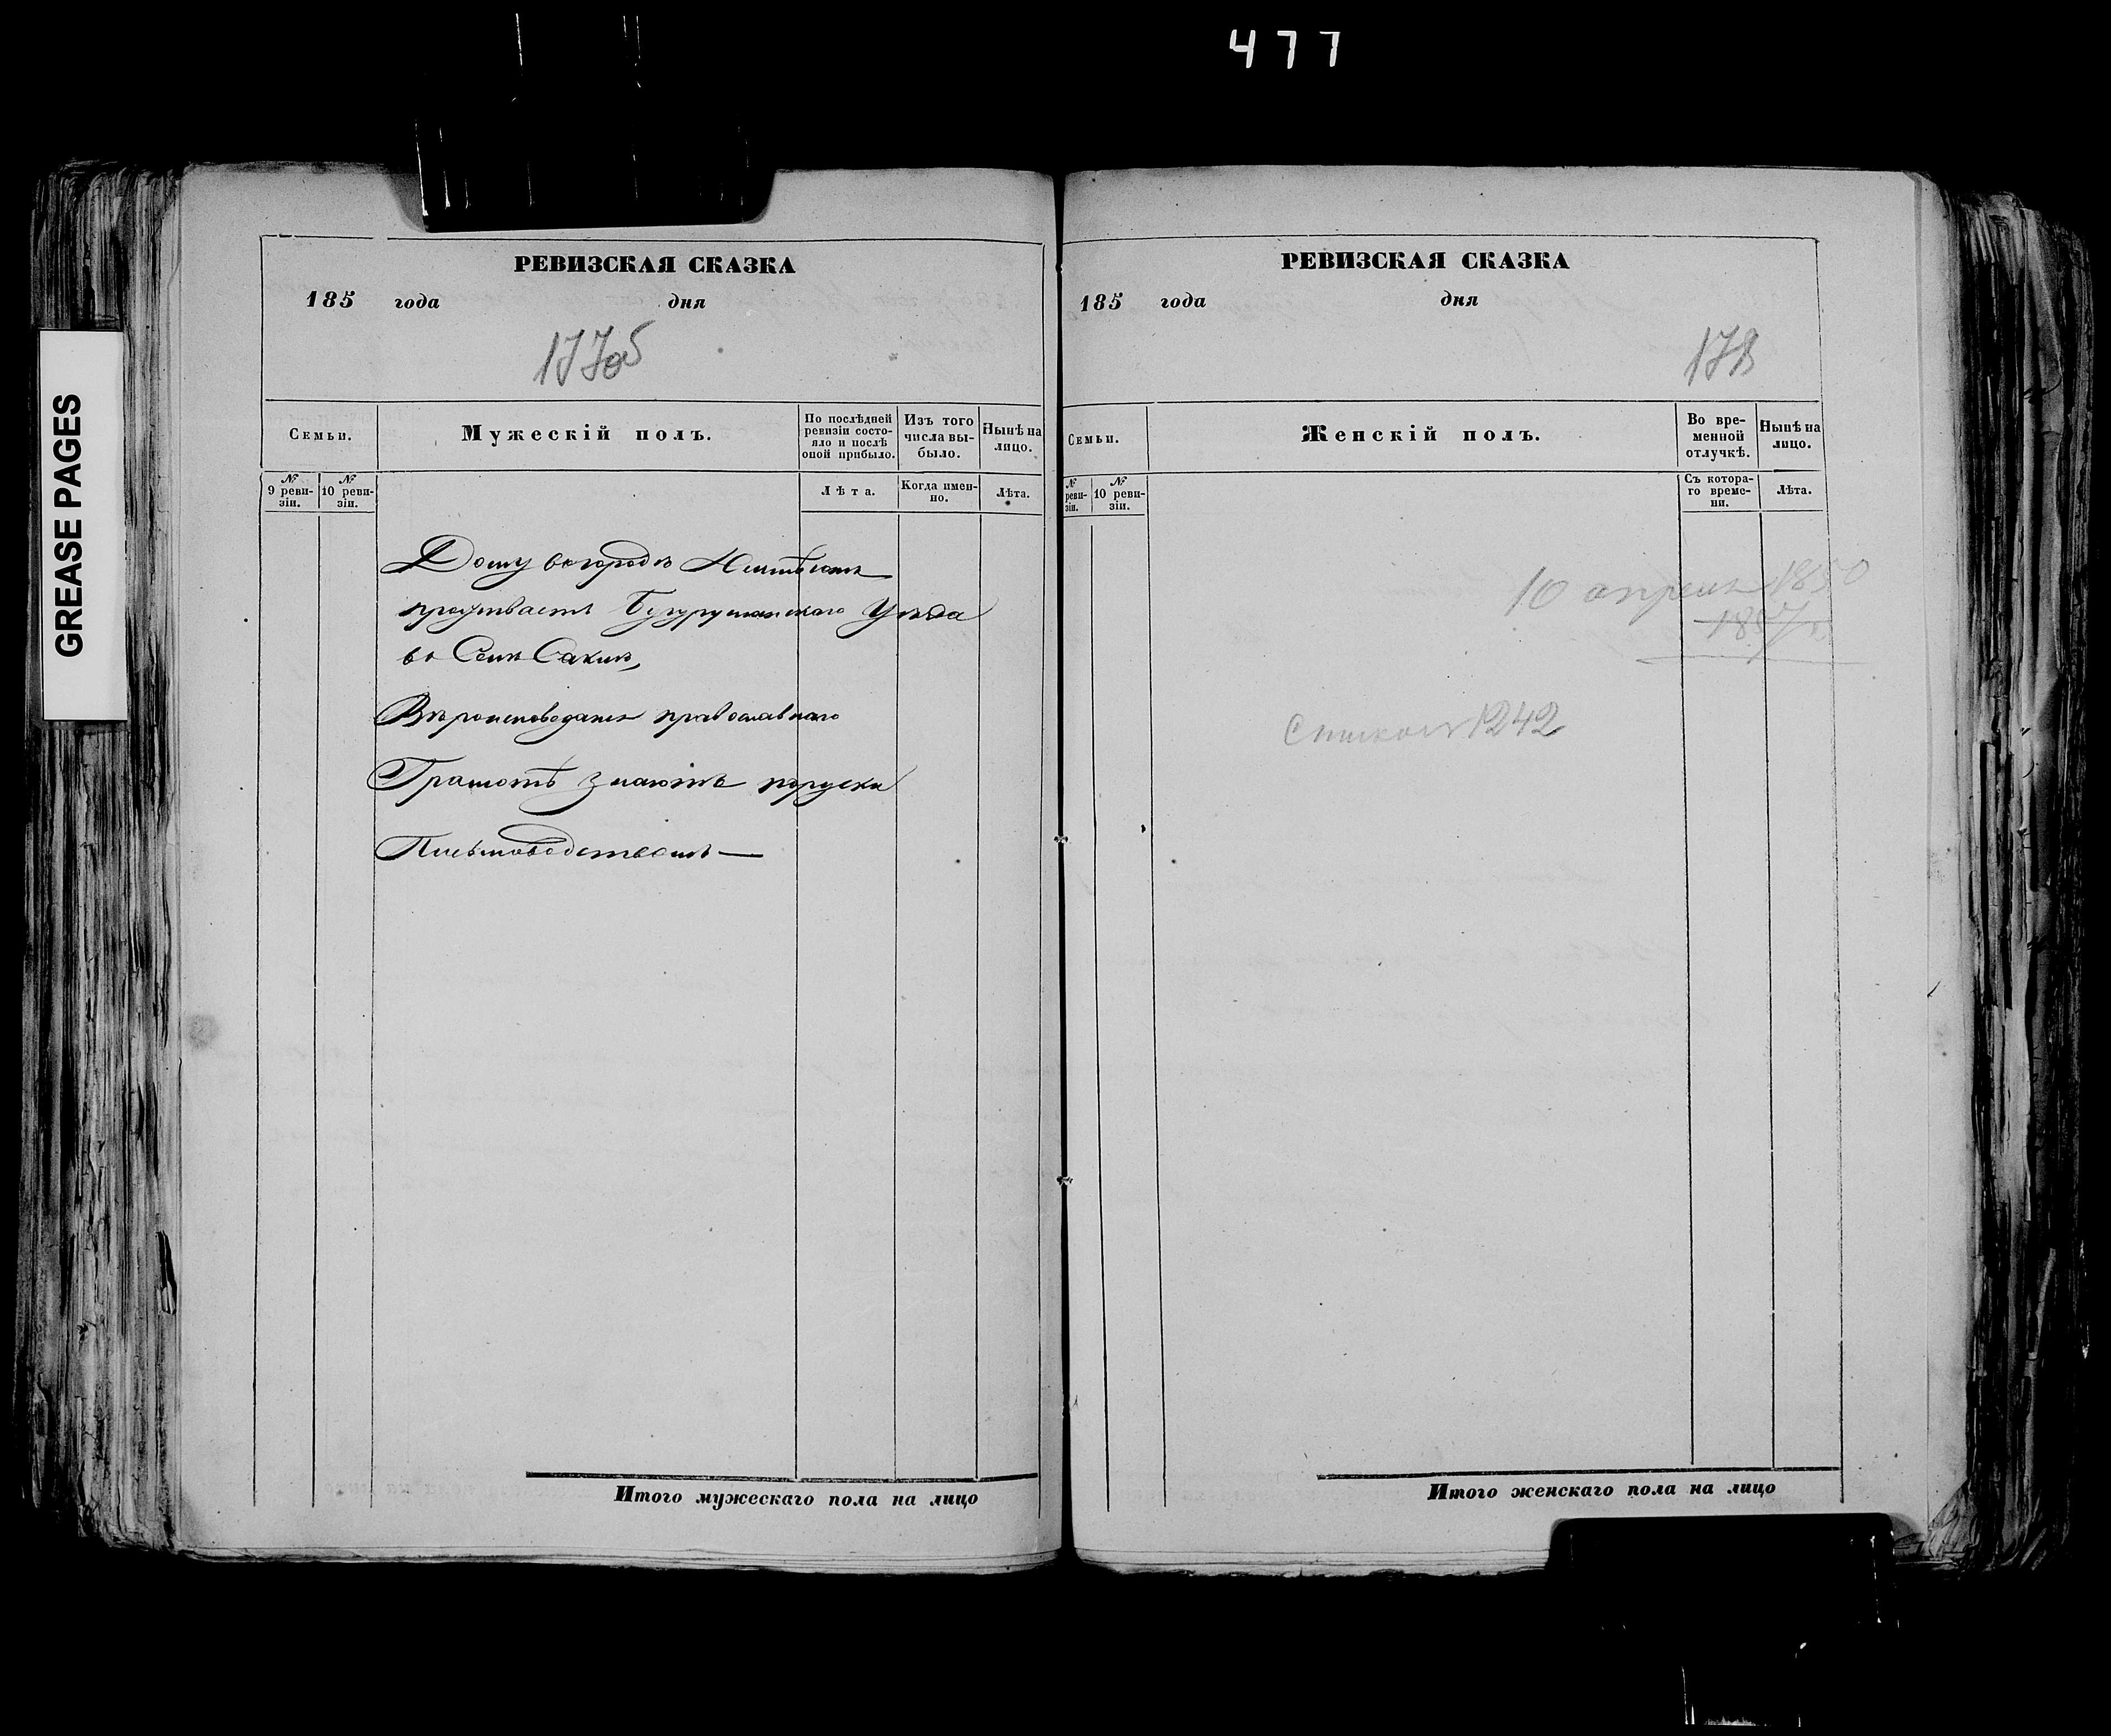 477
GREASE PAGES
РЕВИЗСКАЯ СКАЗКА
185 года дня
177об
Семьи.
Мужескій полъ.
По послѣдней ревизіи состояло и послѣ оной прибыло.
Изъ того числа выбыло.
Нынѣ на лицо.
№ 9 ревизіи.
№ 10 ревизіи.
Лѣта.
Когда именно.
Лѣта.
Дому въ городѣ
проживаетъ Бугурусланскаго Уѣзда
въ Селѣ
Вѣроисповеданія православнаго
Грамотѣ знаютъ поруски
Письмоводствомъ —
Итого мужескаго пола на лицо
РЕВИЗСКАЯ СКАЗКА
185 года дня
178
Семьи.
Женскій полъ.
Во временной отлучкѣ.
Нынѣ на лицо.
№ ревизіи.
№ 10 ревизіи.
Съ котораго времени.
Лѣта.
10 апреля 1850
1857
Списокъ 1242
Итого женскаго пола на лицо